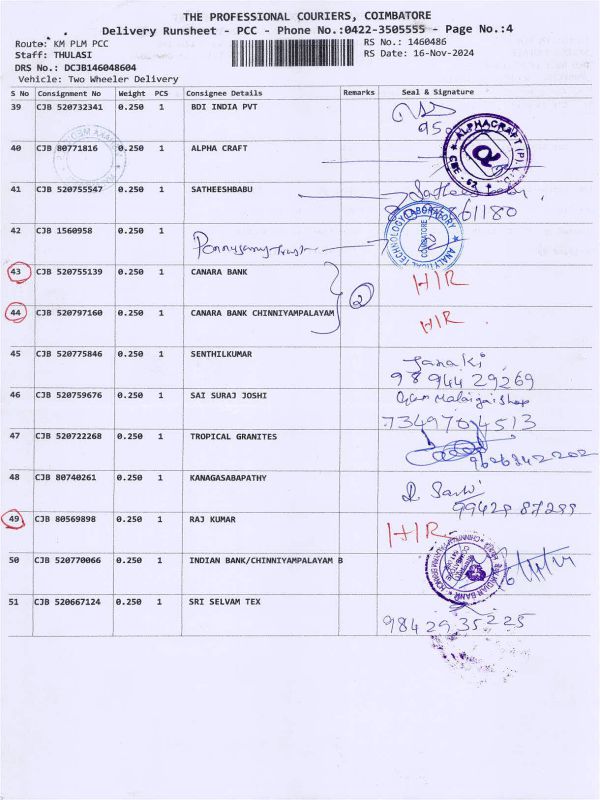 THE PROFESSIONAL COURIERS, COIMBATORE
Delivery Runsheet - PCC - Phone No.:0422-3505555 - Page No.:4
Route: KM PLM PCC
RS No.: 1460486
Staff: THULASI
RS Date: 16-Nov-2024
DRS No.: DCJB146048604
Vehicle: Two Wheeler Delivery
S No Consignment No Weight PCS Consignee Details Remarks Seal & Signature
39 CJB 520732341 0.250 1 BDI INDIA PVT
95
40 CJB 80771816 0.250 1 ALPHA CRAFT
ALPHACRAFT (P)
41 CJB 520755547 0.250 1 SATHEESHBABU
61180
42 CJB 1560958 0.250 1
Ponnusamy Trust
TECHNOLOGY LABORATORY ANALYTICAL
COIMBATORE
43 CJB 520755139 0.250 1 CANARA BANK H/R
2
44 CJB 520797160 0.250 1 CANARA BANK CHINNIYAMPALAYAM H/R
45 CJB 520775846 0.250 1 SENTHILKUMAR
Janaki
98944 29269
46 CJB 520759676 0.250 1 SAI SURAJ JOSHI
Malaigai shop
7349704513
47 CJB 520722268 0.250 1 TROPICAL GRANITES
9626842202
48 CJB 80740261 0.250 1 KANAGASABAPATHY
99429 87299
49 CJB 80569898 0.250 1 RAJ KUMAR H/R
50 CJB 520770066 0.250 1 INDIAN BANK/CHINNIYAMPALAYAM B
INDIAN BANK
51 CJB 520667124 0.250 1 SRI SELVAM TEX
98429 35225